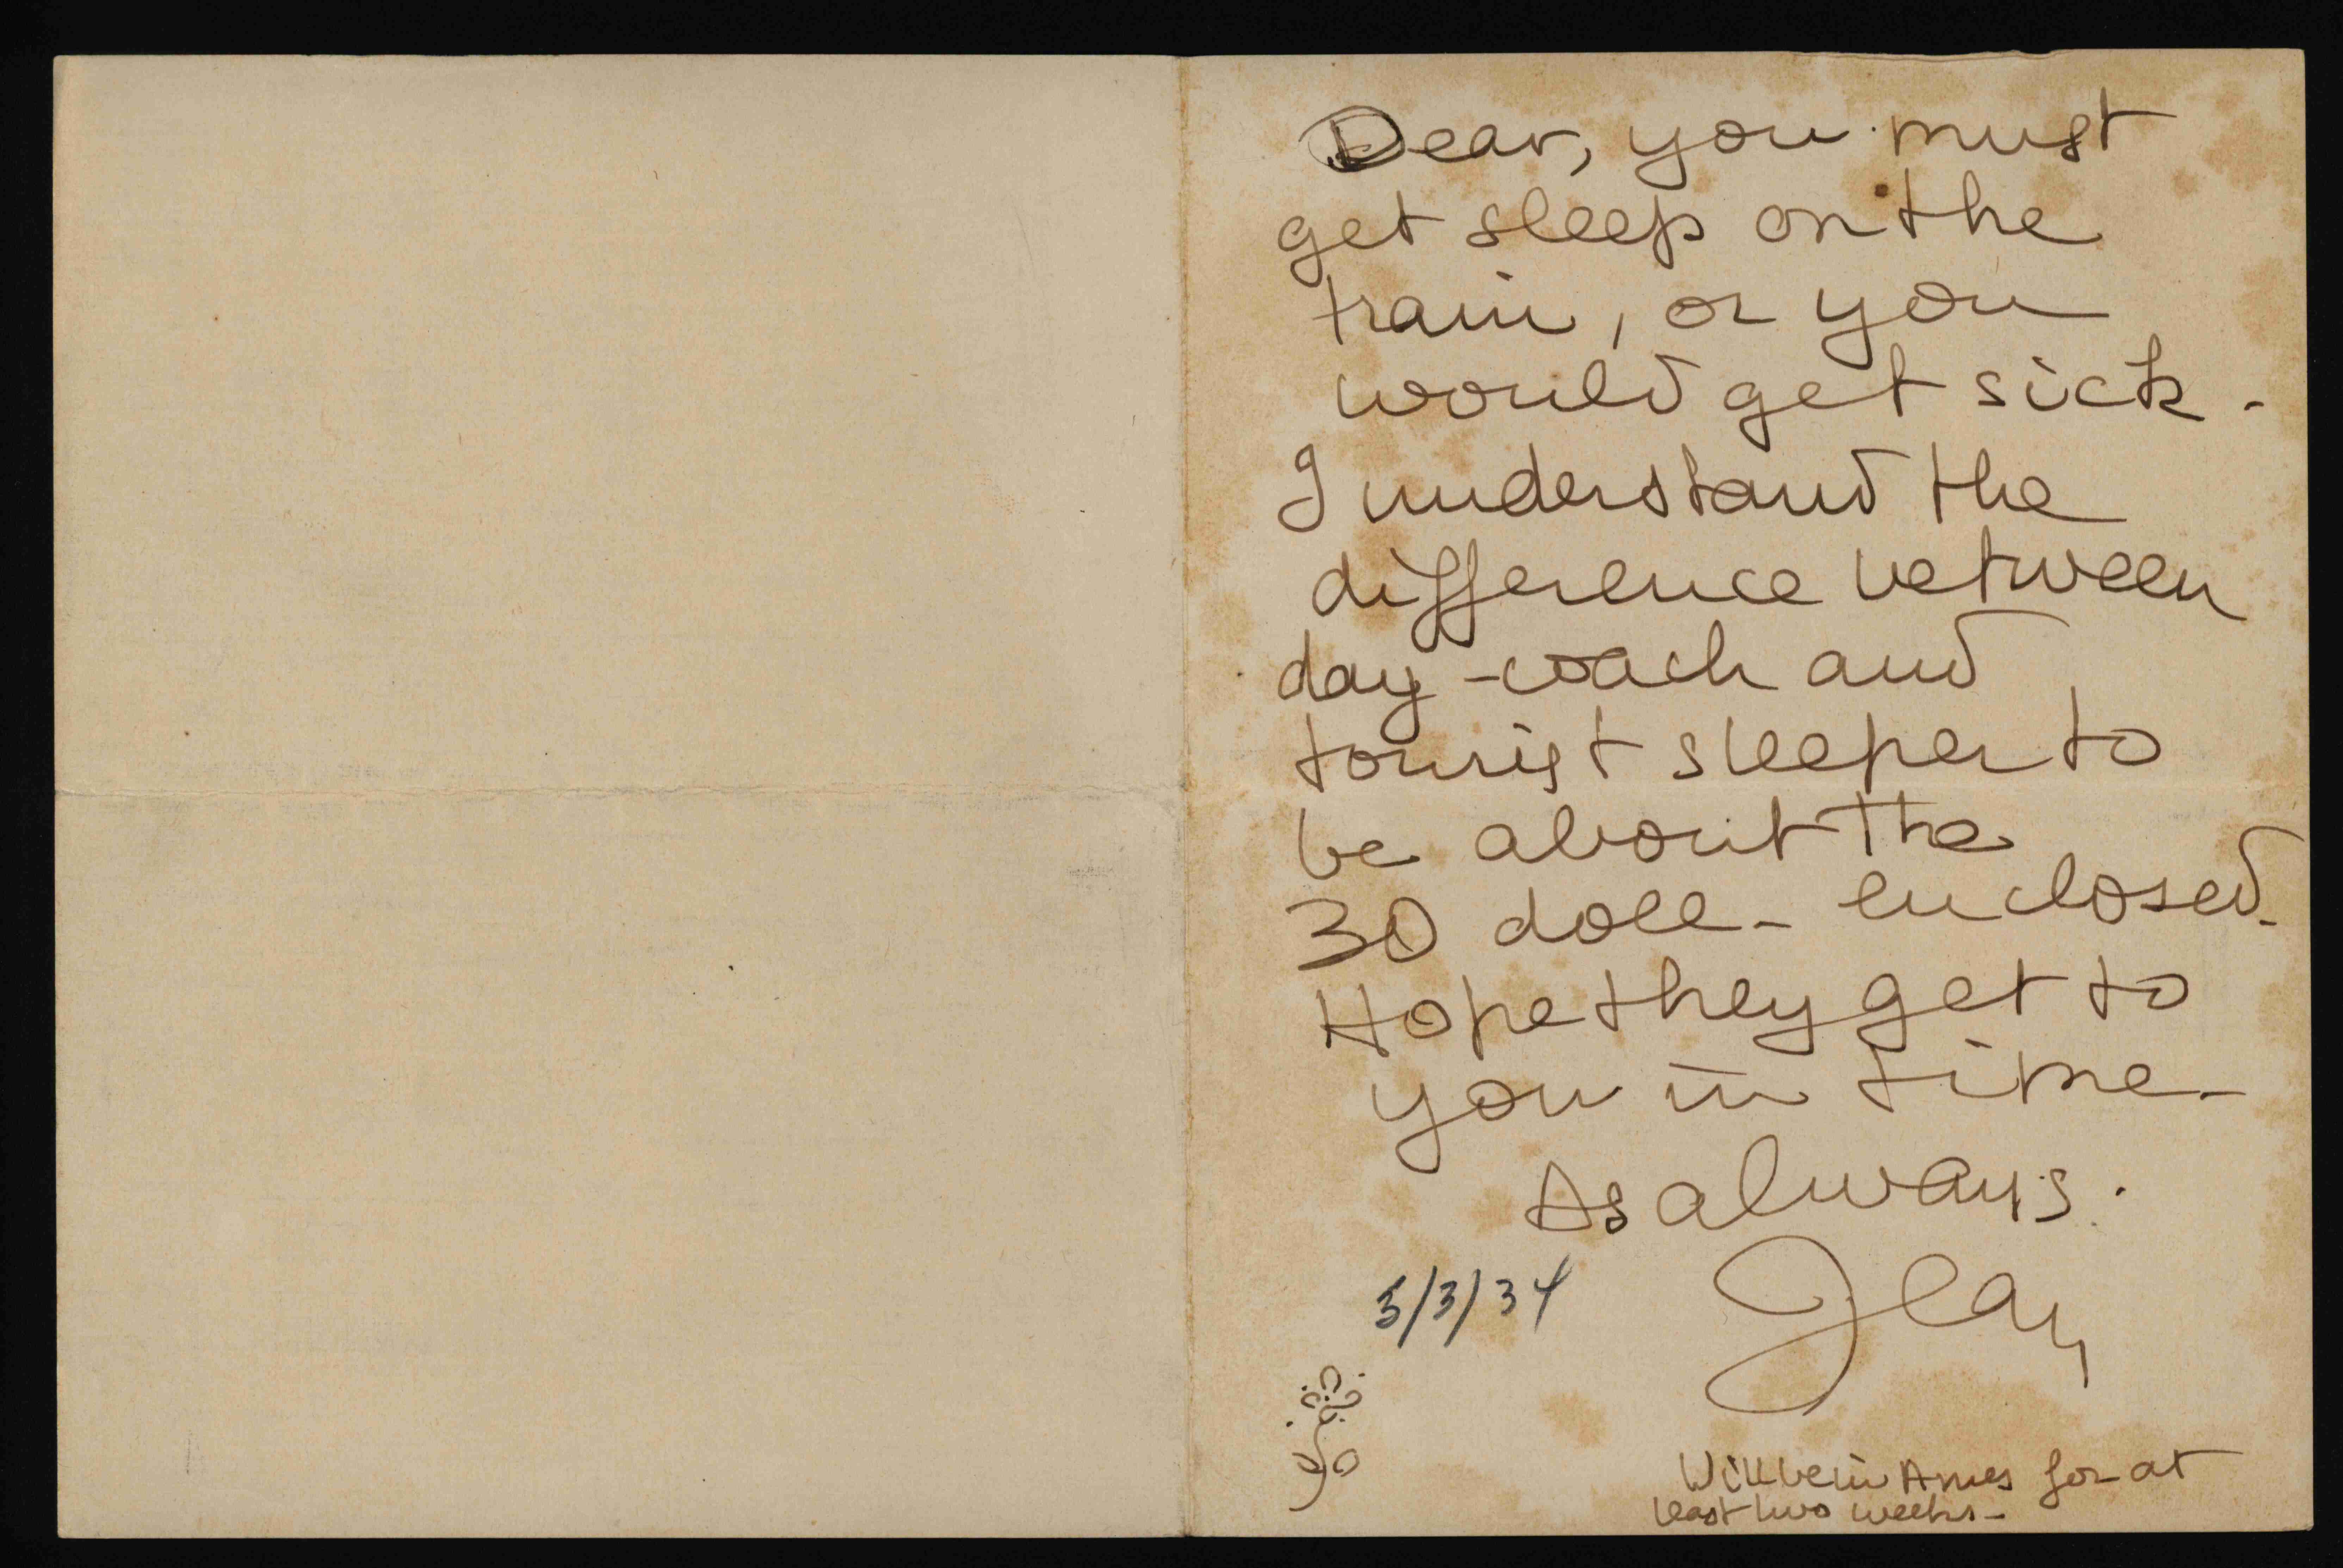 Dear, you must
get sleep on the
train, or you
would get sick -
I understand the
difference between
day-coach and
tourist sleeper to
be about the
30 doll - enclosed.
Hope they get to
you in time -
As always.
Jean
5/3/34
Will be in Ames for at
least two weeks -